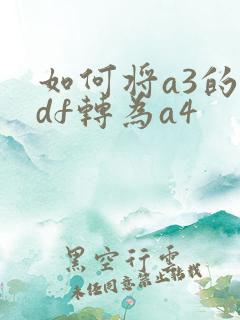 如何将a3的
df轉為a4
黑空行雲
未经同意禁止转载